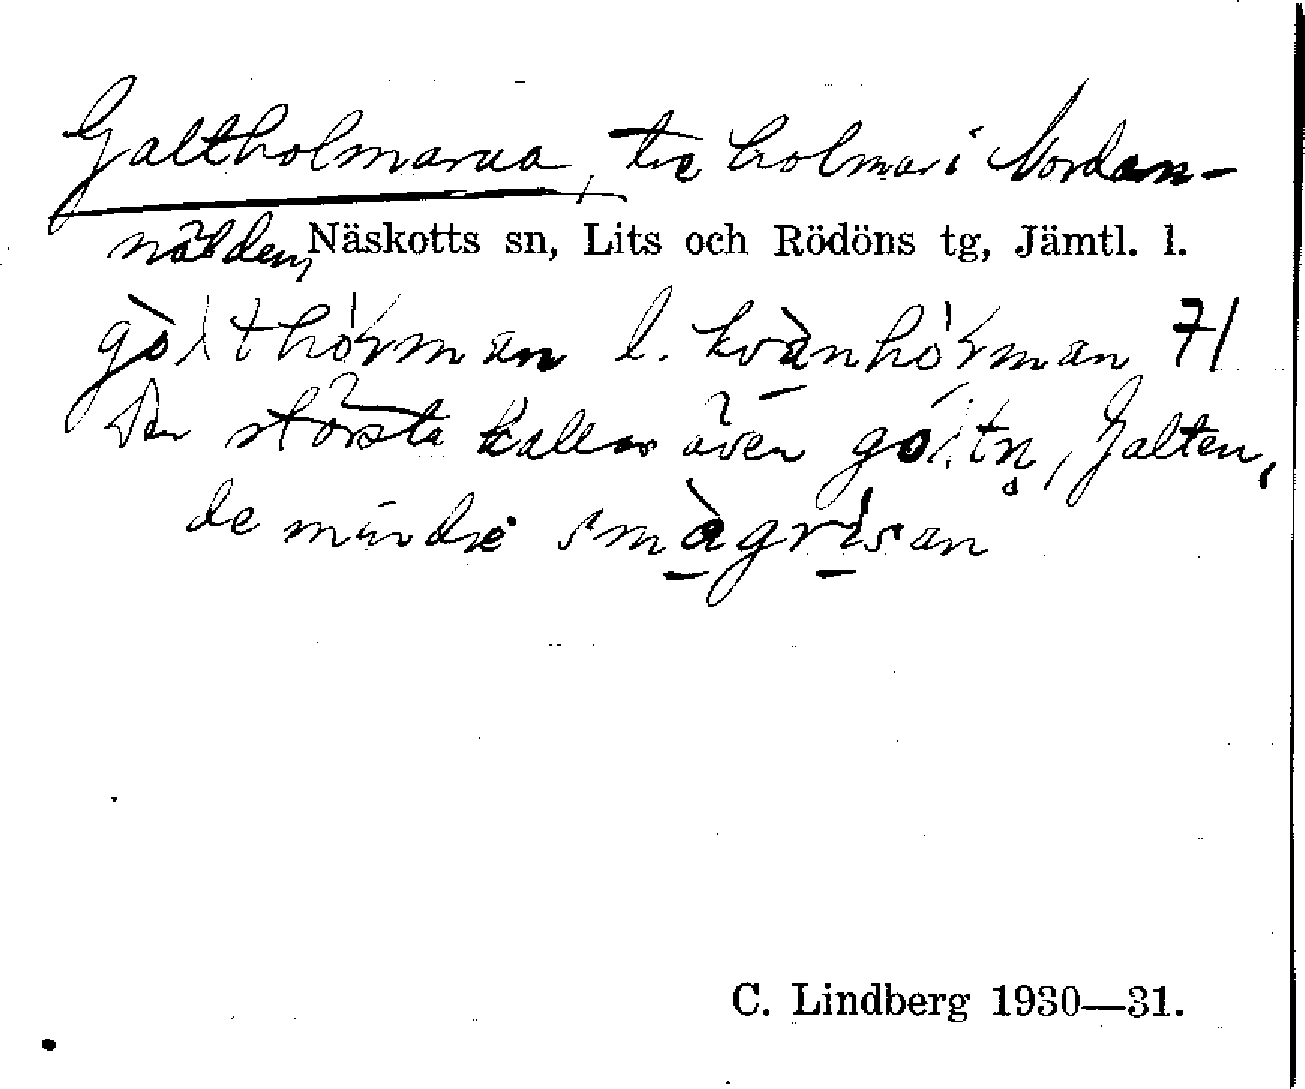 Galtholmarna, tre holmar i Nordan-
nälden, Näskotts sn, Lits och Rödöns tg, Jämtl. l.
gòlthòɽman l. kvànhòɽman 71
Den största kallas även gól.tn̥, Galten,
de mindre smàgrisan
C. Lindberg 1930—31.